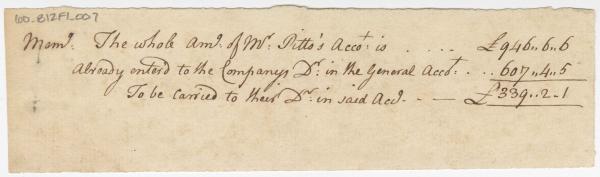 60_B12F1_007
Memo: The whole amt. of Mr. Pitto's Accot. is . . . . £946..6..6
Already enterd to the Companys Dr. in the General Accot. . . 607..4..5
To be carried to their Dr. in said Acct. - - £339..2..1